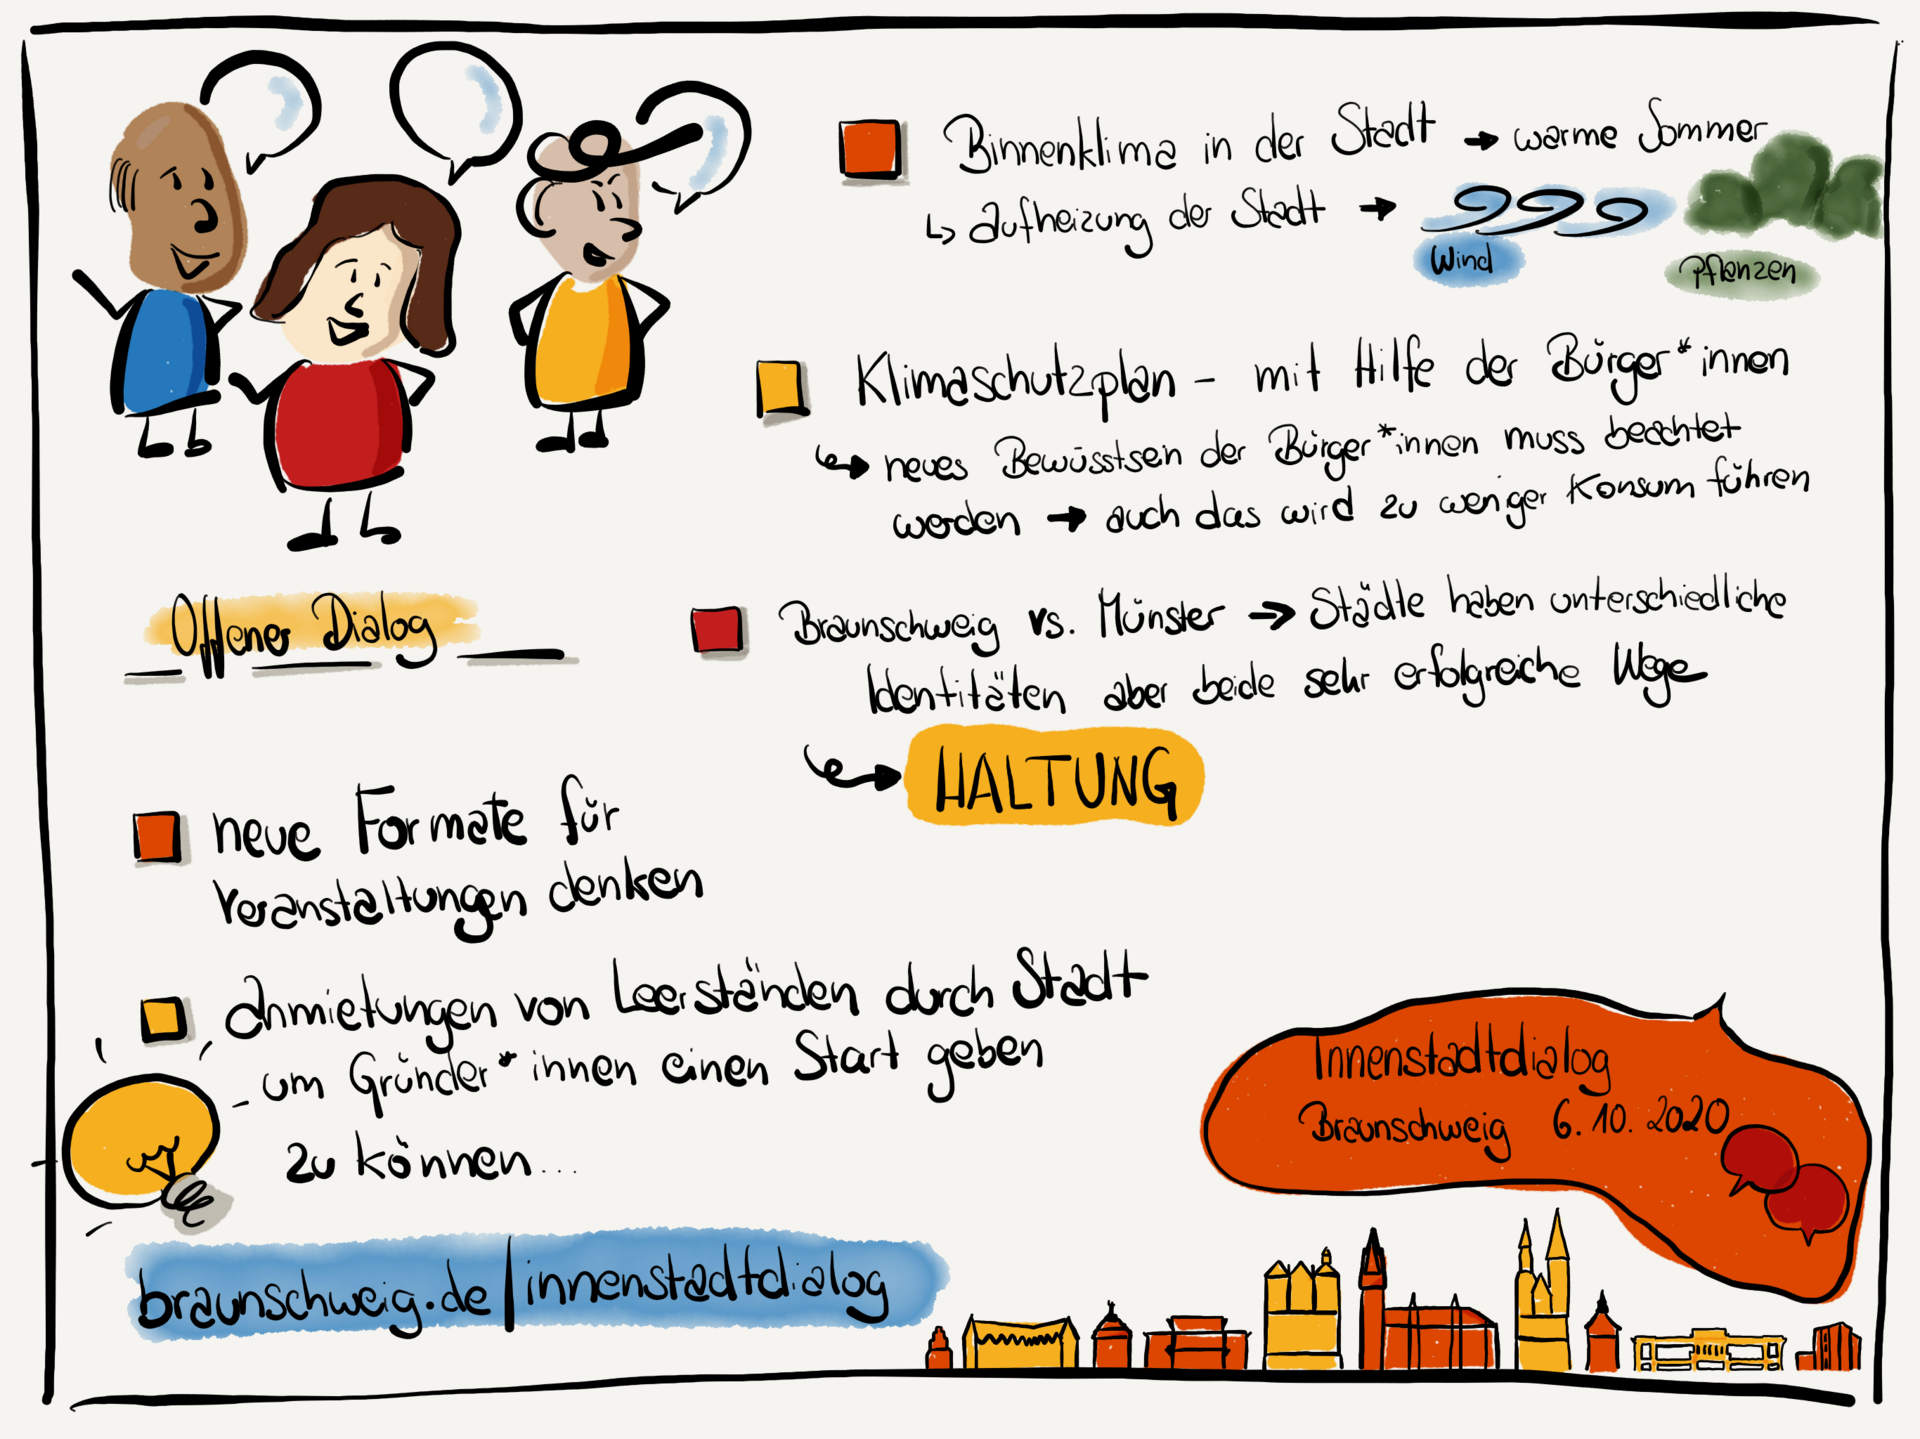 Binnenklima in der Stadt → warme Sommer
↳ Aufheizung der Stadt →
Wind
Pflanzen
Klimaschutzplan - mit Hilfe der Bürger*innen
↳ neues Bewüsstsein der Bürger*innen muss beachtet
werden → auch das wird zu weniger Konsum führen
Offener Dialog
Braunschweig vs. Münster → Städte haben unterschiedliche
Identitäten aber beide sehr erfolgreiche Wege
↳ HALTUNG
neue Formate für
Veranstaltungen denken
Anmietungen von Leerständen durch Stadt
um Gründer*innen einen Start geben
zu können...
Innenstadtdialog
Braunschweig 6.10.2020
braunschweig.de/innenstadtdialog